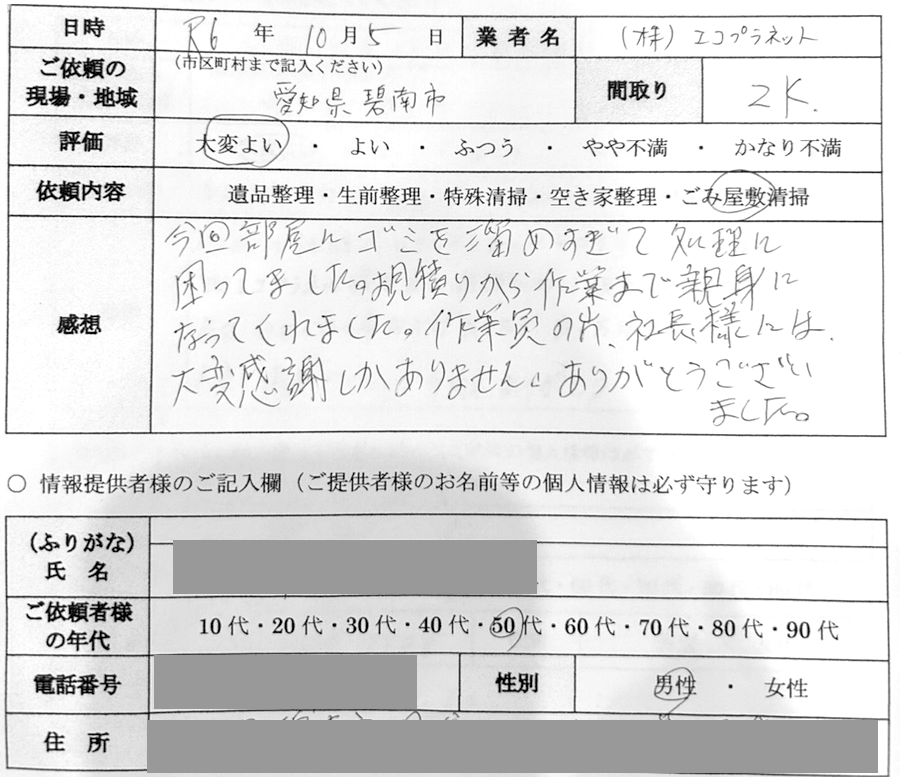 日時 R6 年 10 月 5 日 業者名 (株)エコプラネット
ご依頼の現場・地域 (市区町村まで記入ください) 愛知県碧南市 間取り 2K.
評価 大変よい ・ よい ・ ふつう ・ やや不満 ・ かなり不満
依頼内容 遺品整理・生前整理・特殊清掃・空き家整理・ごみ屋敷清掃
感想
今回部屋にゴミを溜めすぎて処理に
困ってました。見積りから作業まで親身に
なってくれました。作業員の方、社長様には
大変感謝しかありません。ありがとうござい
ました。
○ 情報提供者様のご記入欄(ご提供者様のお名前等の個人情報は必ず守ります)
(ふりがな)
氏 名
ご依頼者様の年代 10代・20代・30代・40代・50代・60代・70代・80代・90代
電話番号 性別 男性 ・ 女性
住 所